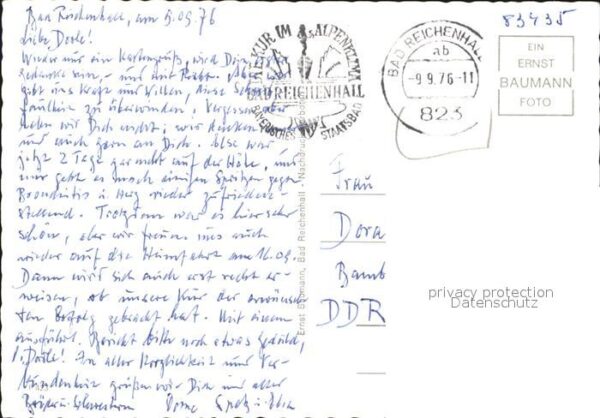 Bad Reichenhall, am 9.09.76
Liebe Dorle!
Wieder nur ein Kartengruß, wird Dein
gibt uns Kraft und Willen, diese
Faulheit zu überwinden. Vergessen aber
haben wir Dich nicht; wir denken
und auch gern an Dich. Else war
jetzt 2 Tage gar nicht auf der Höhe, und
nur geht es nach einigen Spritzen gegen
Bronchitis u. Herz wieder zufrieden-
stellend. Trotzdem war es hier sehr
schön, aber wir freuen uns auch
wieder auf die Heimfahrt am 16.09.
Dann wird sich auch erst recht er-
weisen, ob unsere Kur den erwünsch-
ten Erfolg gebracht hat. Mit einem
Bericht bitte noch etwas Geduld,
Dorle! In aller Herzlichkeit und Ver-
bundenheit grüßen wir Dich und alle
KUR IM ALPENKLIMA
BAD REICHENHALL
BAYERISCHES STAATSBAD
BAD REICHENHALL
ab
-9.9.76-11
823
83435
EIN
ERNST
BAUMANN
FOTO
Ernst Baumann, Bad Reichenhall - Nachdruck
Frau
Dora
Bamb
DDR
privacy protection
Datenschutz